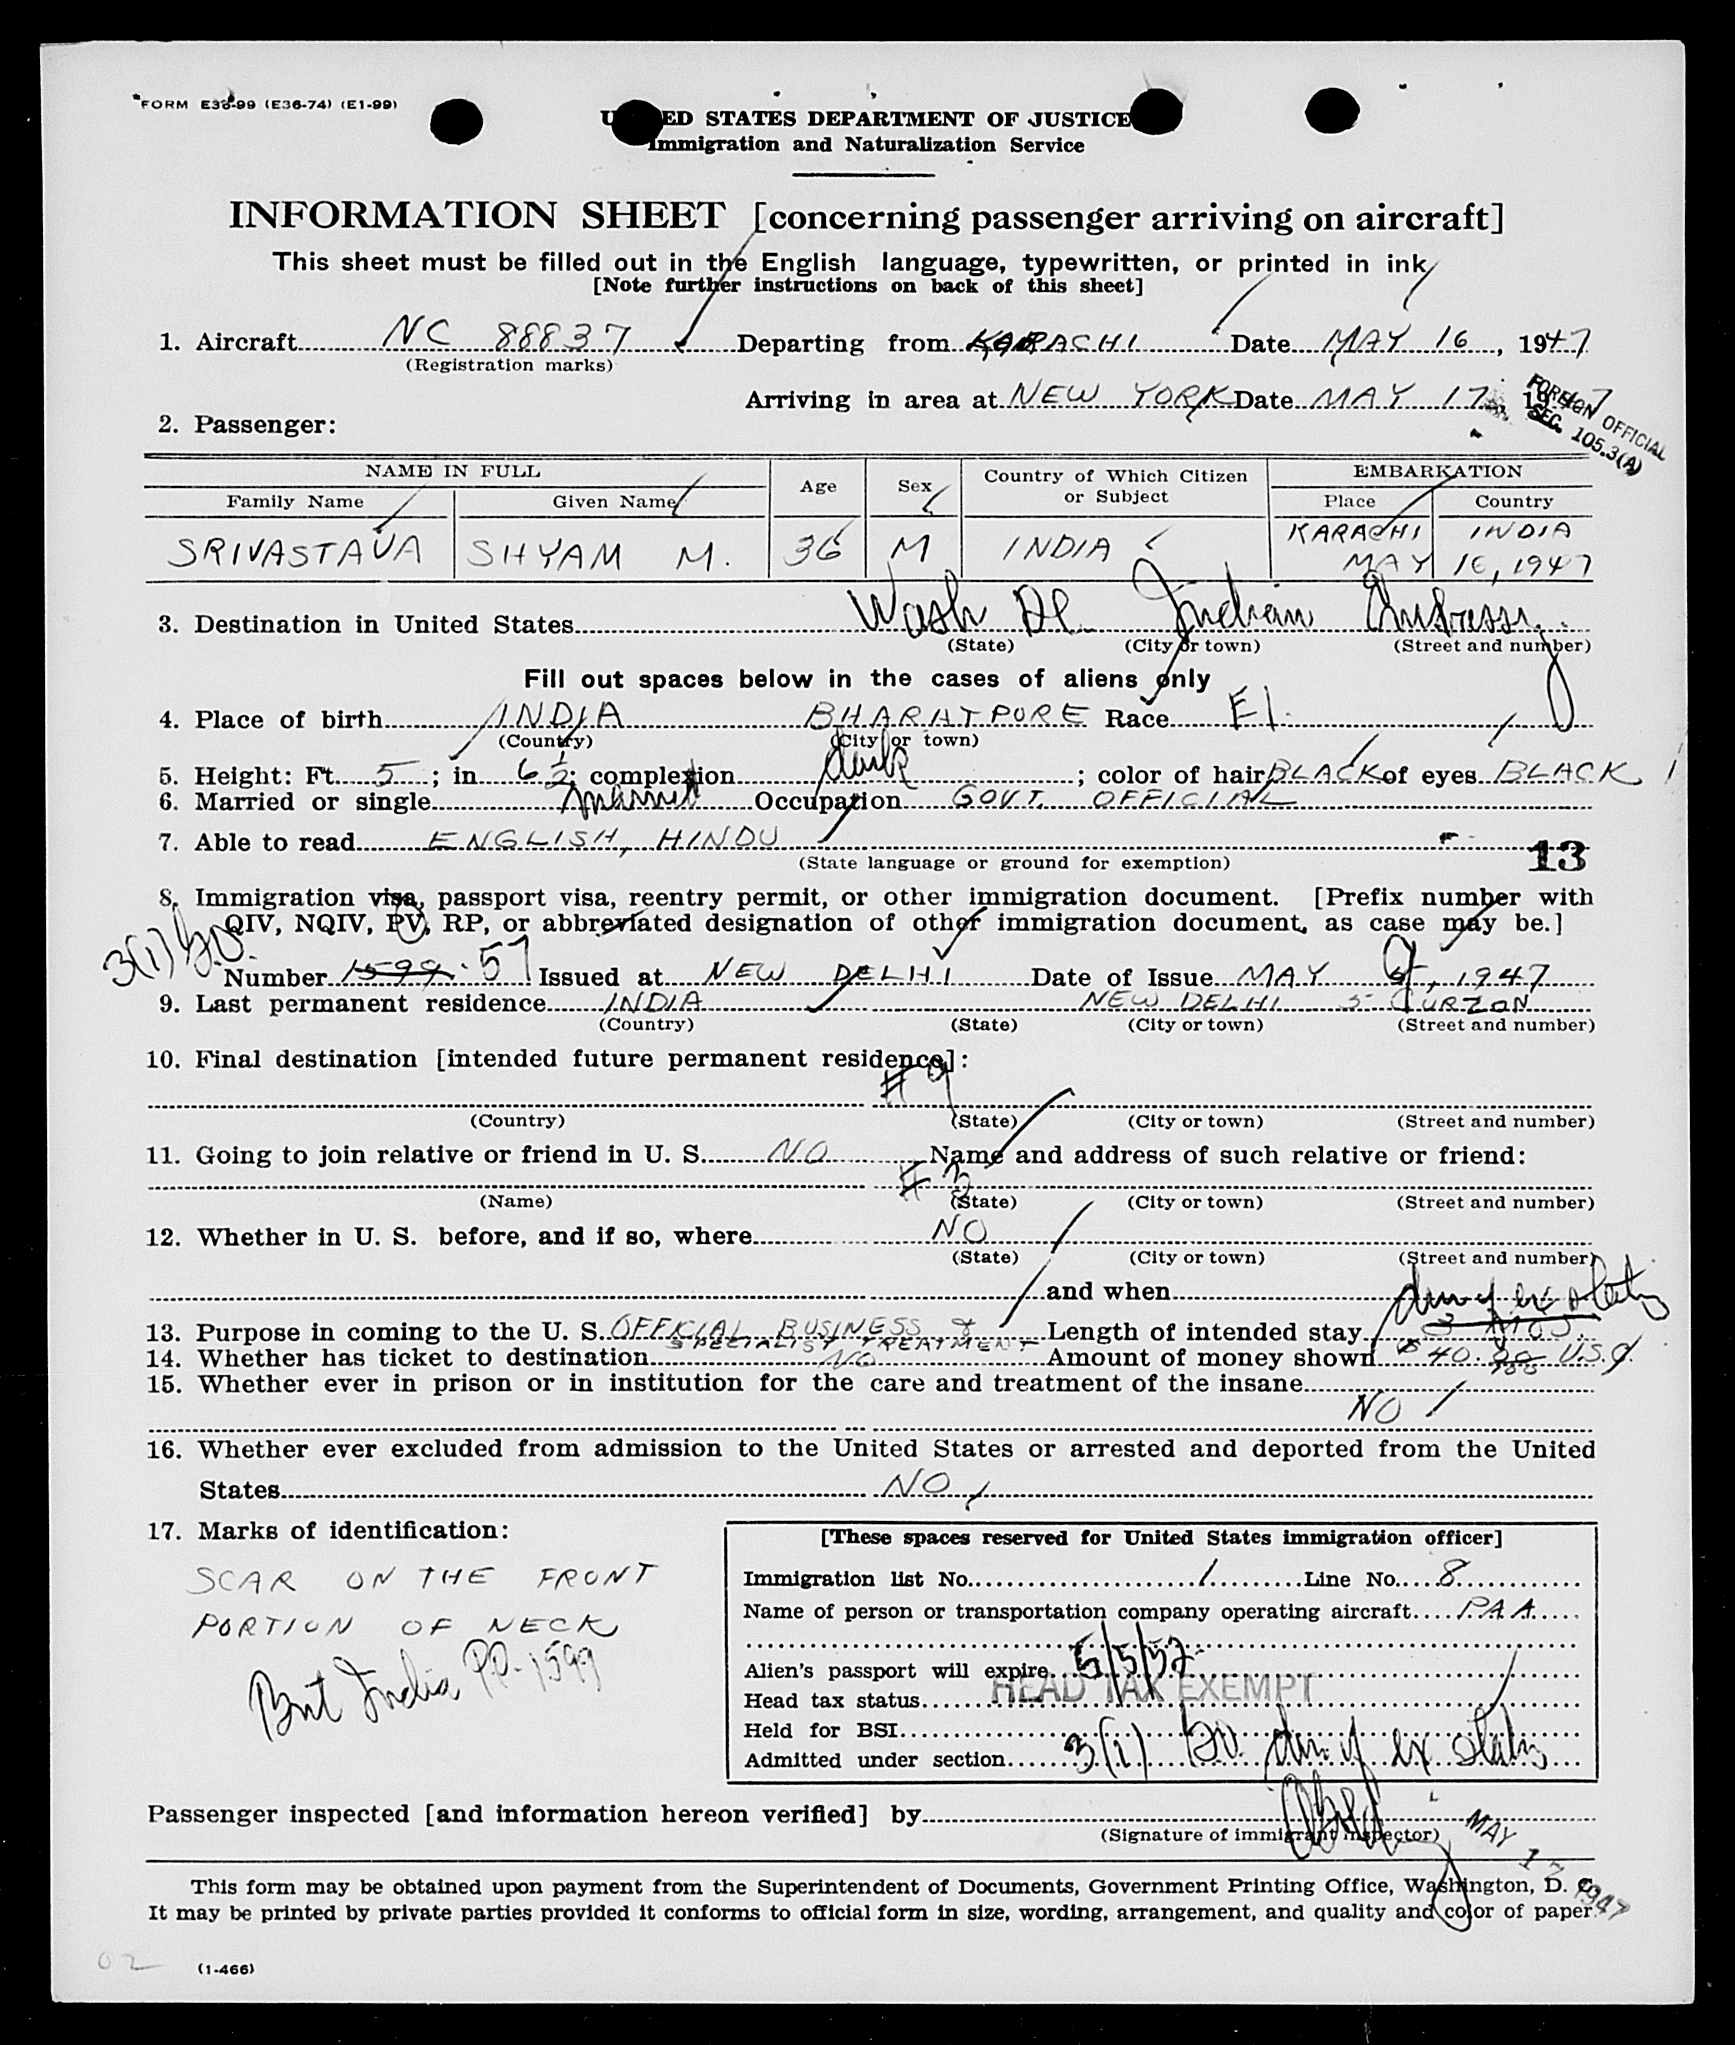 FORM E36-99 (E36-74) (E1-99)
UNITED STATES DEPARTMENT OF JUSTICE
Immigration and Naturalization Service
INFORMATION SHEET [concerning passenger arriving on aircraft]
This sheet must be filled out in the English language, typewritten, or printed in ink
[Note further instructions on back of this sheet]
1. Aircraft NC 88837 Departing from KARACHI Date MAY 16, 1947
(Registration marks)
Arriving in area at NEW YORK Date MAY 17, 1947
FOREIGN OFFICIAL
SEC. 105.3(A)
2. Passenger:
NAME IN FULL Age Sex Country of Which Citizen or Subject EMBARKATION
Family Name Given Name Place Country
SRIVASTAVA SHYAM M. 36 M INDIA KARACHI INDIA
MAY 16, 1947
3. Destination in United States Wash DC Indian Embassy
(State) (City or town) (Street and number)
Fill out spaces below in the cases of aliens only
4. Place of birth INDIA BHARATPORE Race EI
(Country) (City or town)
5. Height: Ft. 5; in 6 1/2; complexion dark; color of hair BLACK of eyes BLACK
6. Married or single married Occupation GOVT. OFFICIAL
7. Able to read ENGLISH, HINDU
(State language or ground for exemption)
13
8. Immigration visa, passport visa, reentry permit, or other immigration document. [Prefix number with
QIV, NQIV, PV, RP, or abbreviated designation of other immigration document, as case may be.]
3(1)
Number 1599 57 Issued at NEW DELHI Date of Issue MAY 9, 1947
9. Last permanent residence INDIA NEW DELHI 5 CURZON
(Country) (State) (City or town) (Street and number)
10. Final destination [intended future permanent residence]:
#9
(Country) (State) (City or town) (Street and number)
11. Going to join relative or friend in U. S. NO Name and address of such relative or friend:
#3
(Name) (State) (City or town) (Street and number)
12. Whether in U. S. before, and if so, where NO
(State) (City or town) (Street and number)
and when
dur of ex status
13. Purpose in coming to the U. S. OFFICIAL BUSINESS & Length of intended stay 3 MOS
SPECIALIST TREATMENT
14. Whether has ticket to destination NO Amount of money shown $40.00 U.S.
15. Whether ever in prison or in institution for the care and treatment of the insane
NO
16. Whether ever excluded from admission to the United States or arrested and deported from the United
States NO
17. Marks of identification:
SCAR ON THE FRONT
PORTION OF NECK
Brit India P.P. 1599
[These spaces reserved for United States immigration officer]
Immigration list No. 1 Line No. 8
Name of person or transportation company operating aircraft PAA
Alien's passport will expire 5/5/52
Head tax status HEAD TAX EXEMPT
Held for BSI
Admitted under section 3(1) dur. of ex status
Passenger inspected [and information hereon verified] by
(Signature of immigrant inspector)
MAY 17 1947
This form may be obtained upon payment from the Superintendent of Documents, Government Printing Office, Washington, D. C.
It may be printed by private parties provided it conforms to official form in size, wording, arrangement, and quality and color of paper.
02 (1-466)